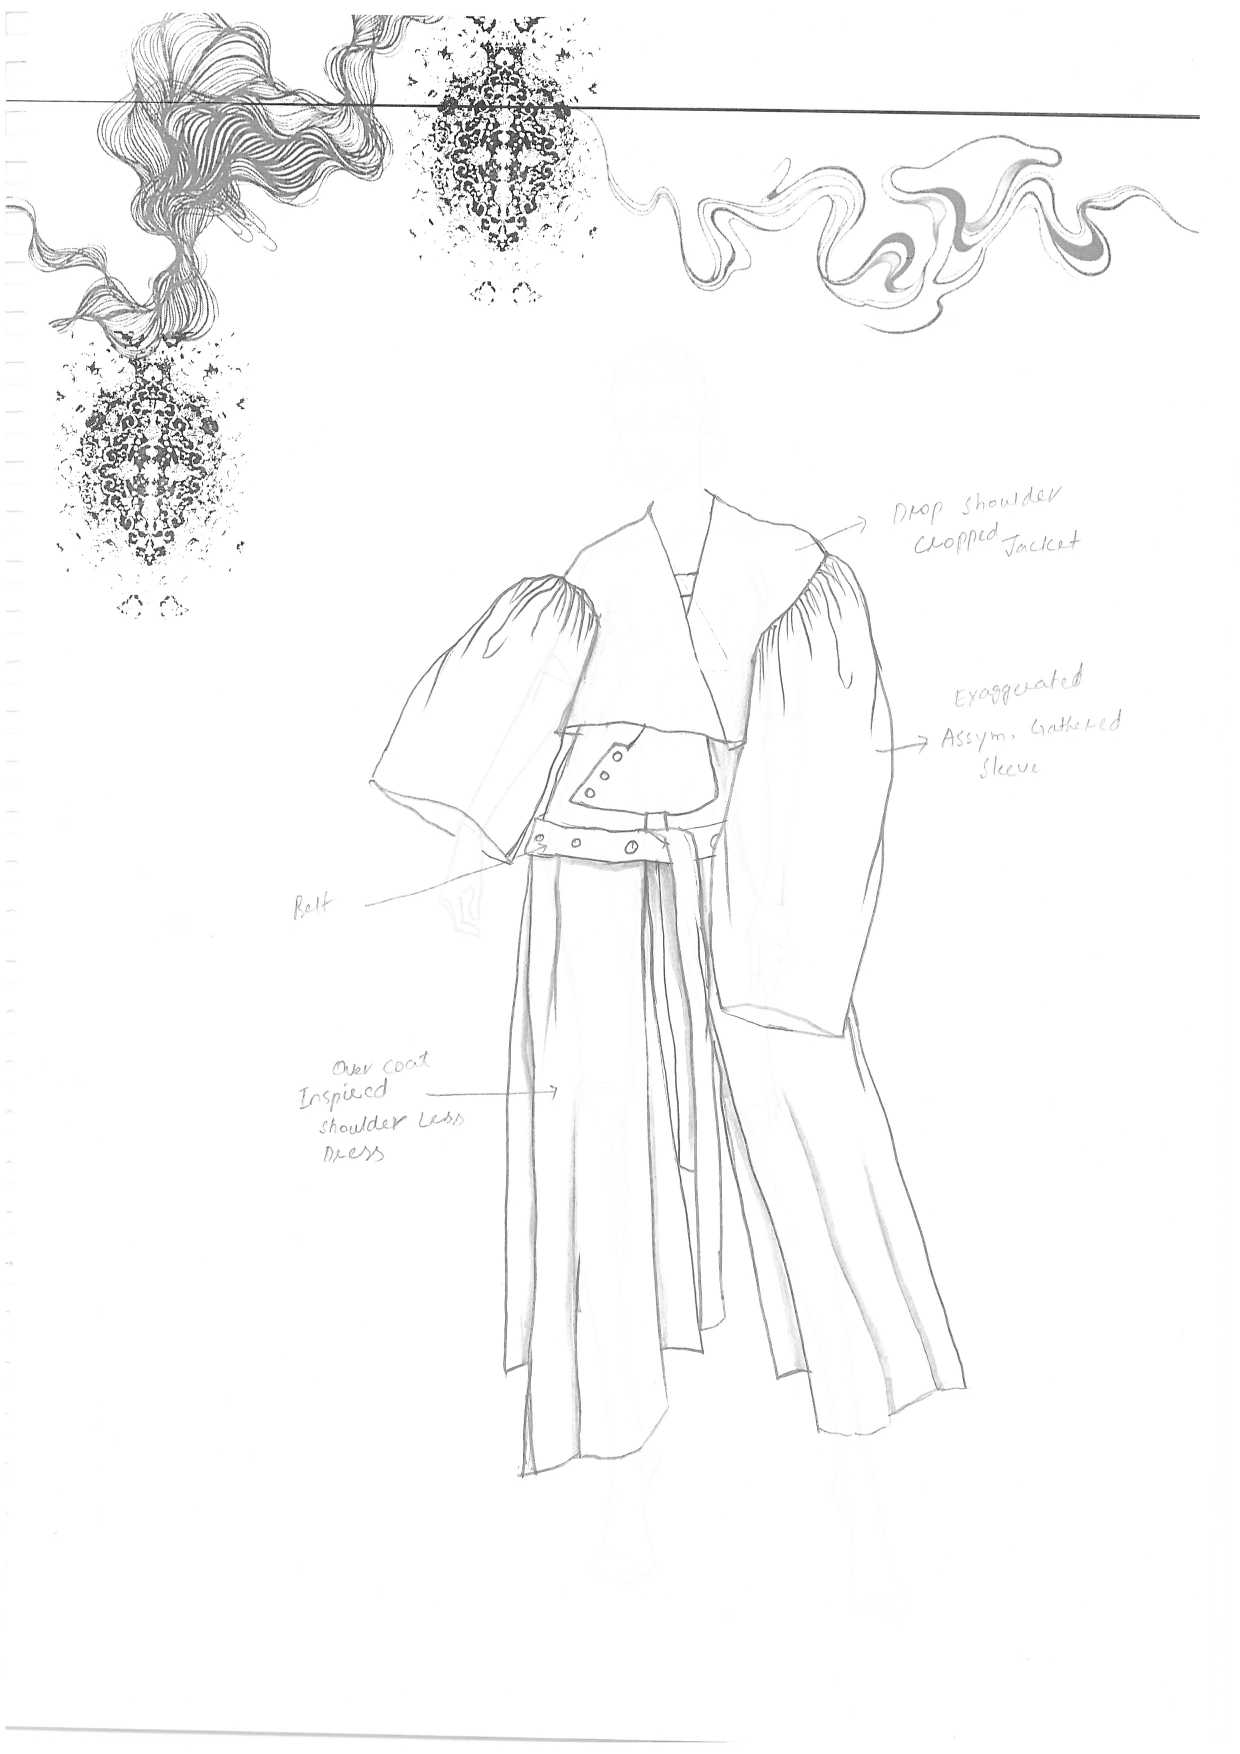 Drop Shoulder
Cropped Jacket
Exaggerated
Assym. Gathered
Sleeve
Belt
Over coat
Inspired
Shoulder Less
Dress